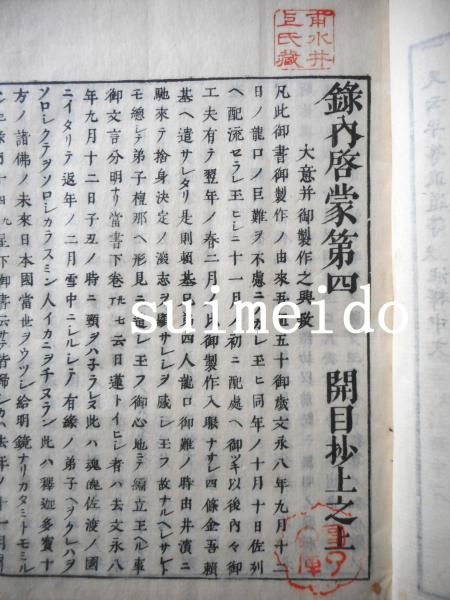 錄內啓蒙第四 開目抄上之上
大意并御製作之興致
凡此御書御製作ノ由來五百五十御歲文永八年九月十二
日ノ龍口ノ巨難ヲ不慮ニノカレ玉ヒ同年ノ十月十日佐州
ヘ配流セラレ玉ヒシニ十一月ノ初ニ配處ヘ御ツキ以後內々御
工夫有テ翌年ノ春二月ノ比御製作入眼ナサレ四條金吾賴
基ヘ遣サレタリ是則賴基兄弟四人龍口御難ノ時由井濱ニ
馳來テ捨身決定ノ深志ヲ
モ總シテ弟子檀那ヘ形見ニ遺シ玉フ御心地ニテ編立玉ヘル事
御文言分明ナリ當書下卷云日蓮トイヒシ者ハ去文永八
年九月十二日子丑ノ時ニ頸ヲハネラレヌ此ハ魂魄佐渡ノ國
ニイタリテ返年ノ二月雪中ニシルシテ有緣ノ弟子ヘヲクレハヲ
ソロシクテヲソロシカラスミン人イカニヲチヌラン此ハ釋迦多寶十
方ノ諸佛ノ未來日本國當世ヲウツシ給明鏡ナリカタミトモミル
suimeido